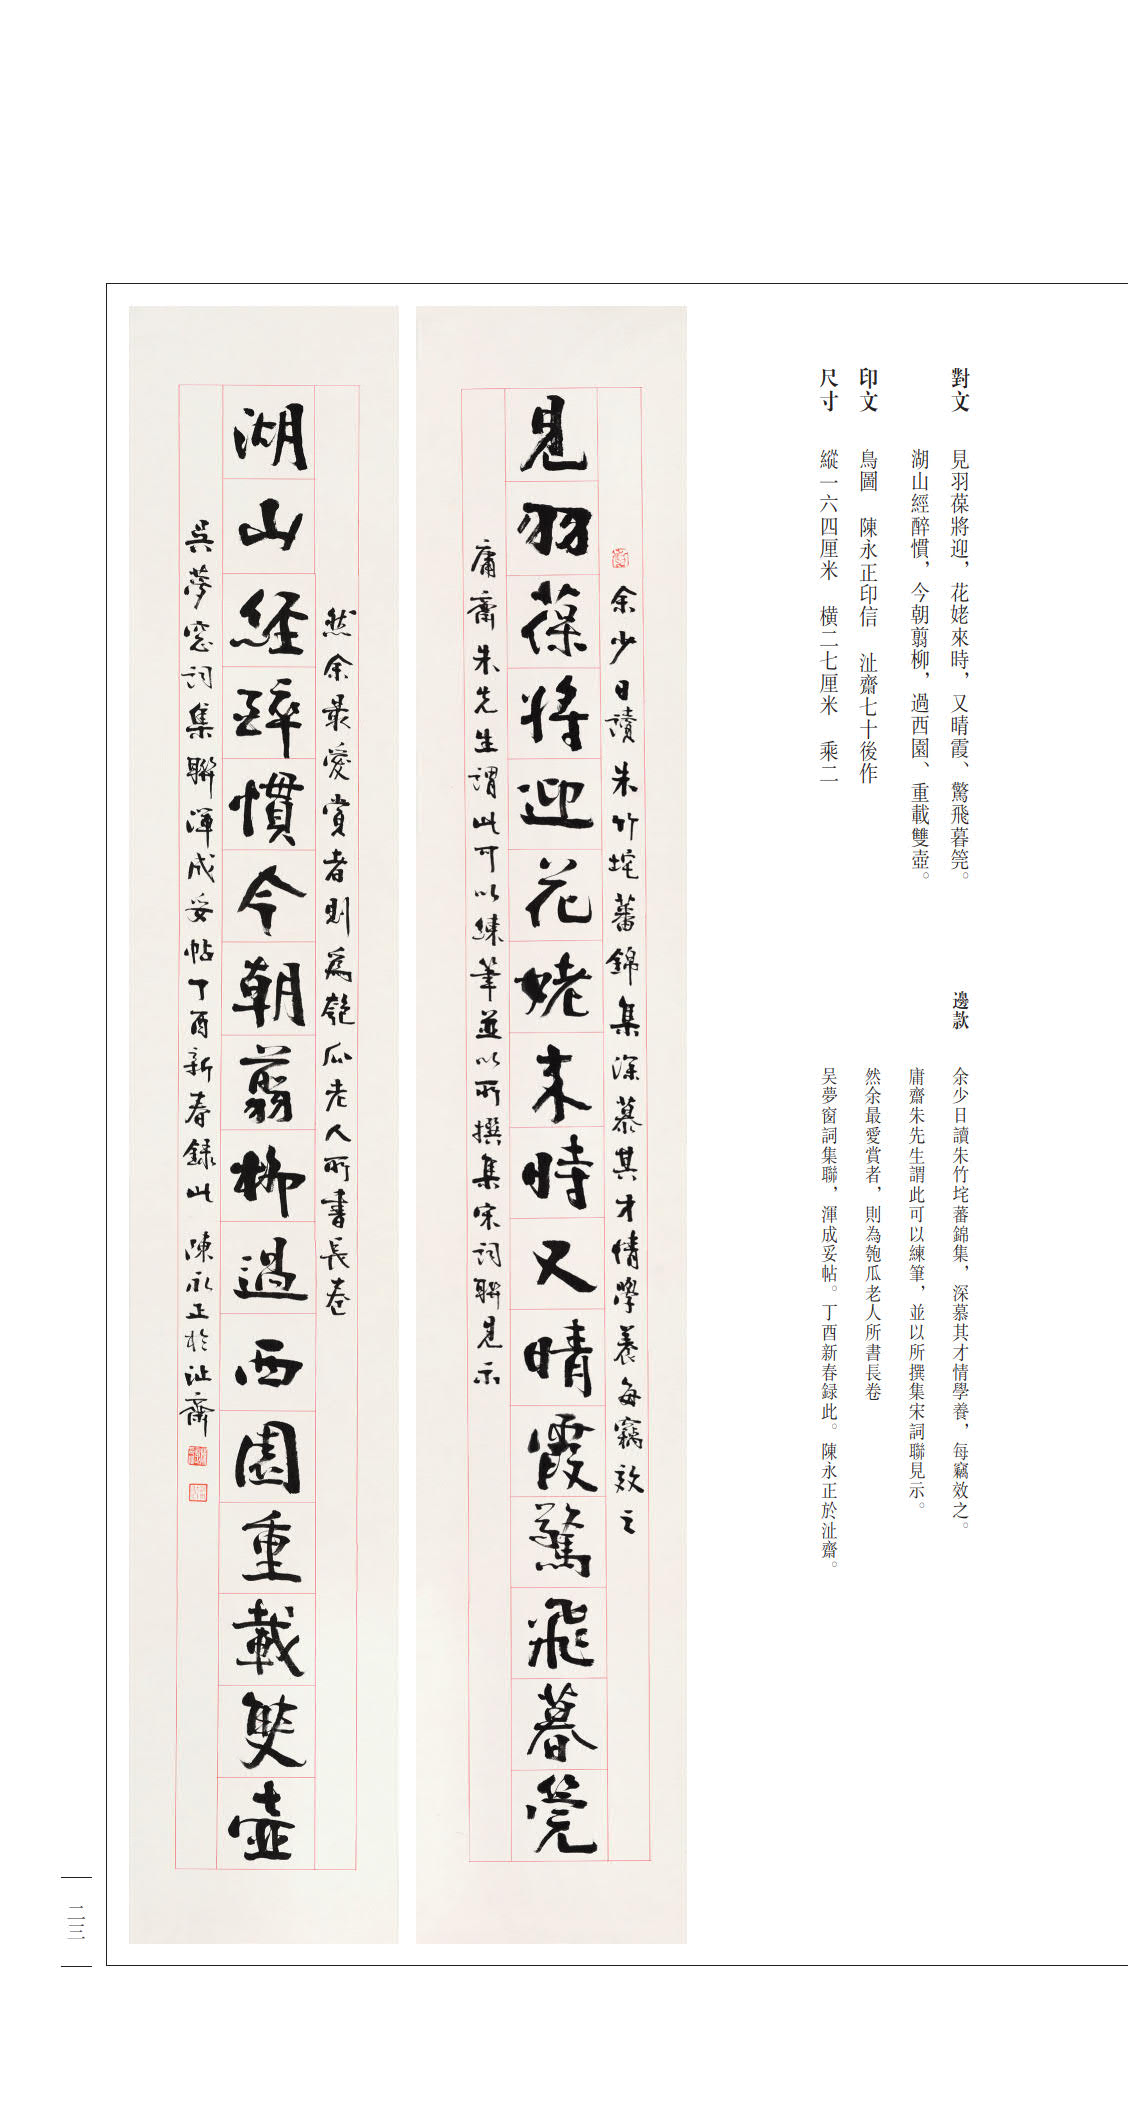 對文　見羽葆將迎，花姥來時，又晴霞、驚飛暮筦。
湖山經醉慣，今朝翦柳，過西園、重載雙壺。
印文　鳥圖　陳永正印信　沚齋七十後作
尺寸　縱一六四厘米　橫二七厘米　乘二
邊款　余少日讀朱竹垞蕃錦集，深慕其才情學養，每竊效之。
庸齋朱先生謂此可以練筆，並以所撰集宋詞聯見示。
然余最愛賞者，則為匏瓜老人所書長卷
吴夢窗詞集聯，渾成妥帖。丁酉新春録此。陳永正於沚齋。
余少日讀朱竹垞蕃錦集深慕其才情學養每竊效之
見羽葆將迎花姥来時又晴霞驚飛暮筦
庸齋朱先生謂此可以練筆並以所撰集宋詞聯見示
然余最愛賞者則為匏瓜老人所書長卷
湖山經醉慣今朝翦柳過西園重載雙壺
吳夢窓詞集聯渾成妥帖丁酉新春録此　陳永正於沚齋
二三